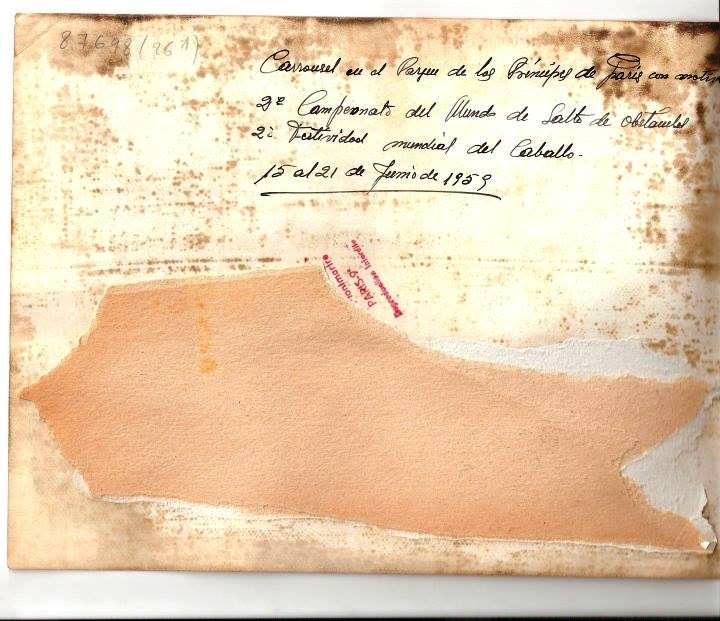 87698 (261)
Carrousel en el Parque de los Príncipes de París con motivo
2º Campeonato del Mundo de Salto de obstáculos
2ª Festividad mundial del Caballo.
15 al 21 de Junio de 1959
onlmartre
PARIS-9e
Reproduction Interdite